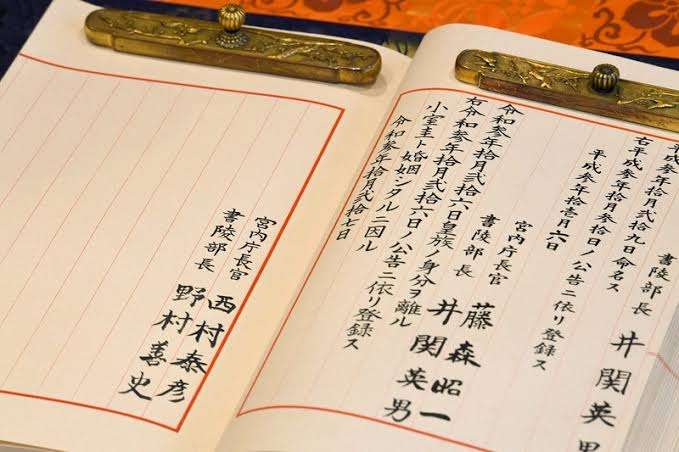 書陵部長 井関英男
平成参年拾月弐拾九日命名ス
右平成参年拾月参拾日ノ公告ニ依リ登録ス
平成参年拾壱月六日
宮内庁長官 藤森昭一
書陵部長 井関英男
令和参年拾月弐拾六日皇族ノ身分ヲ離ル
小室圭ト婚姻シタルニ因ル
右令和参年拾月弐拾六日ノ公告ニ依リ登録ス
令和参年拾月弐拾七日
宮内庁長官 西村泰彦
書陵部長 野村善史